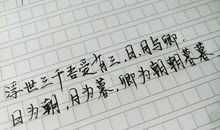 浮世三千吾爱有三,日,月与卿.
日为朝,月为暮,卿为朝朝暮暮.